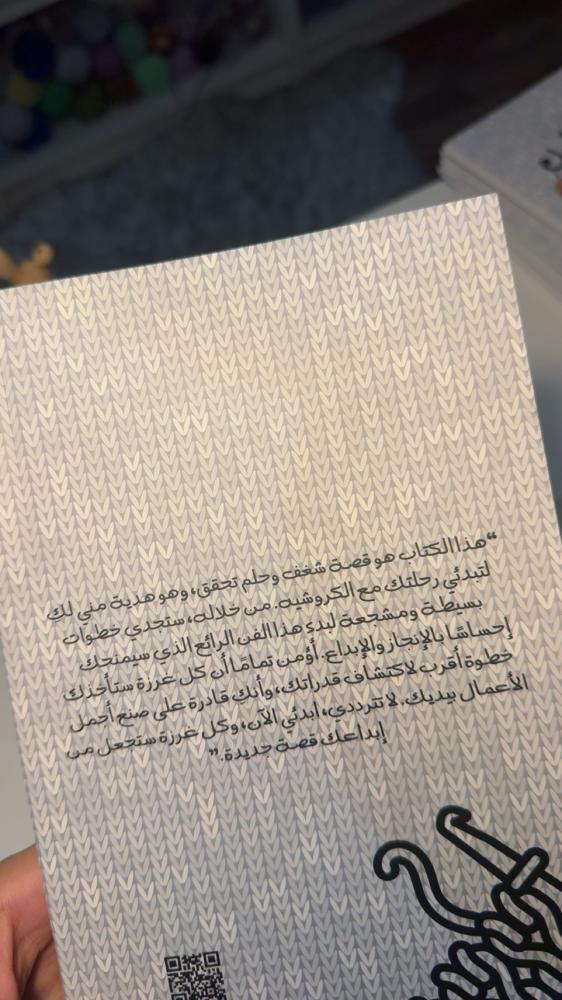 “هذا الكتاب هو قصة شغف وحلم تحقق، وهو هدية مني لكِ
لتبدئي رحلتك مع الكروشيه. من خلاله، ستجدي خطوات
بسيطة ومشجعة لبدء هذا الفن الرائع الذي سيمنحك
إحساسًا بالإنجاز والإبداع. أؤمن تمامًا أن كل غرزة ستأخذك
خطوة أقرب لاكتشاف قدراتك، وأنكِ قادرة على صنع أجمل
الأعمال بيديك. لا تترددي، ابدئي الآن، وكل غرزة ستجعل من
إبداعك قصة جديدة.”